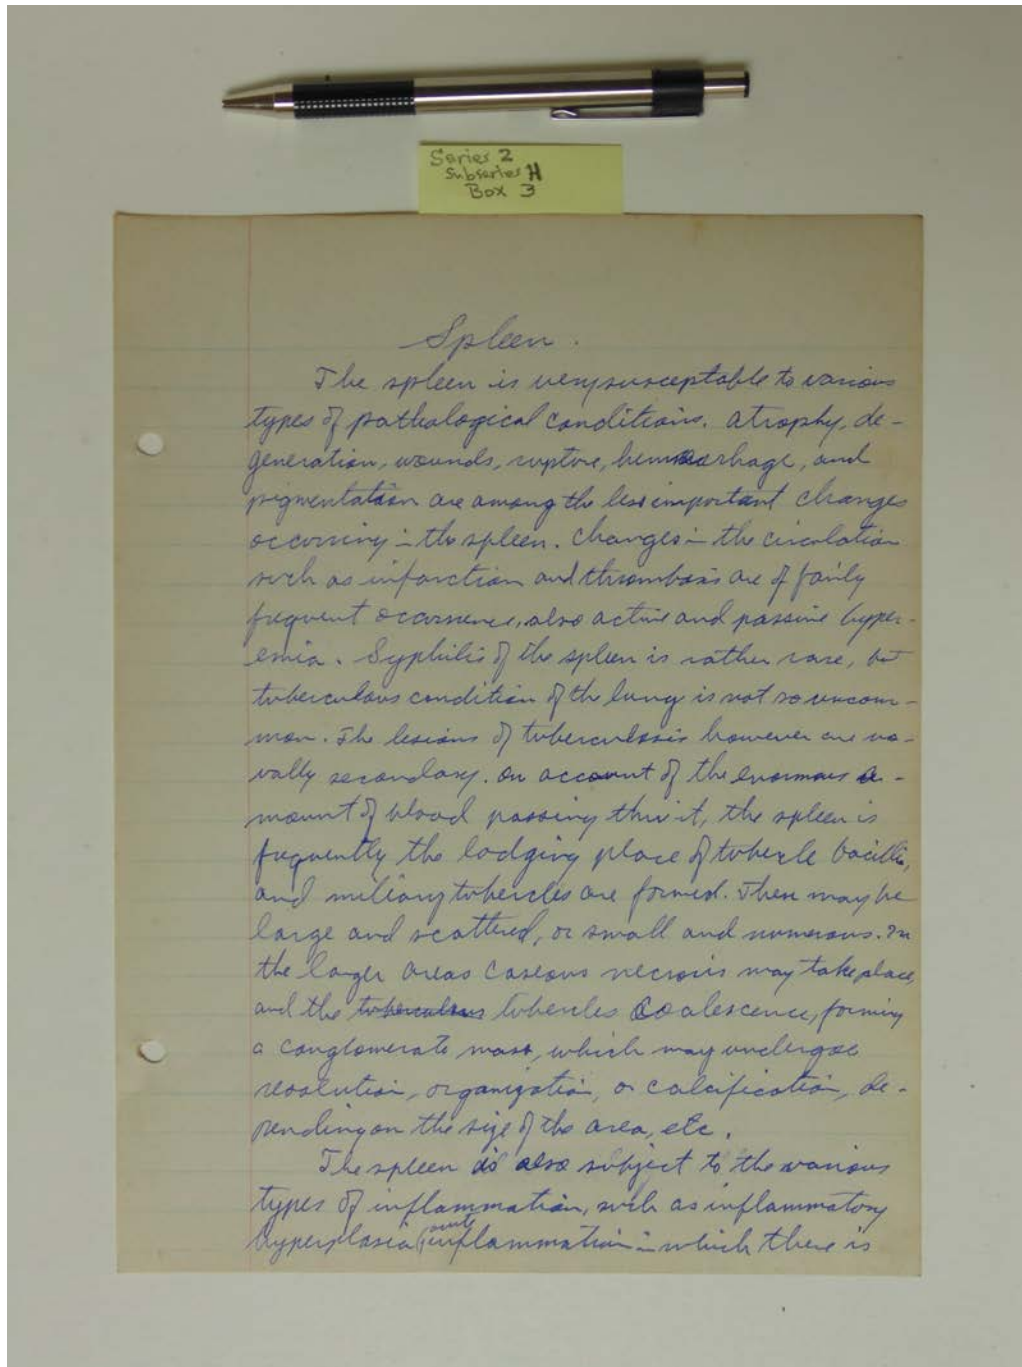 Series 2
Subseries H
Box 3
Spleen.
The spleen is very susceptable to various
types of pathological conditions. Atrophy, de-
generation, wounds, rupture, hemorrhage, and
pigmentation are among the less important changes
occurring in the spleen. Changes in the circulation
such as infarction and thrombosis are of fairly
frequent occurrence, also active and passive hyper-
emia. Syphilis of the spleen is rather rare, but
tuberculous condition of the lung is not so uncom-
mon. The lesions of tuberculosis however are us-
ually secondary. On account of the enormous a-
mount of blood passing thru it, the spleen is
frequently the lodging place of tubercle bacilli,
and miliary tubercles are formed. These may be
large and scattered, or small and numerous. In
the larger areas caseous necrosis may take place,
and the tuberculous tubercles coalescence, forming
a conglomerate mass, which may undergoe
resolution, organization, or calcification, de-
pending on the size of the area, etc.
The spleen is also subject to the various
types of inflammation, such as inflammatory
hyperplasia (acute inflammation in which there is